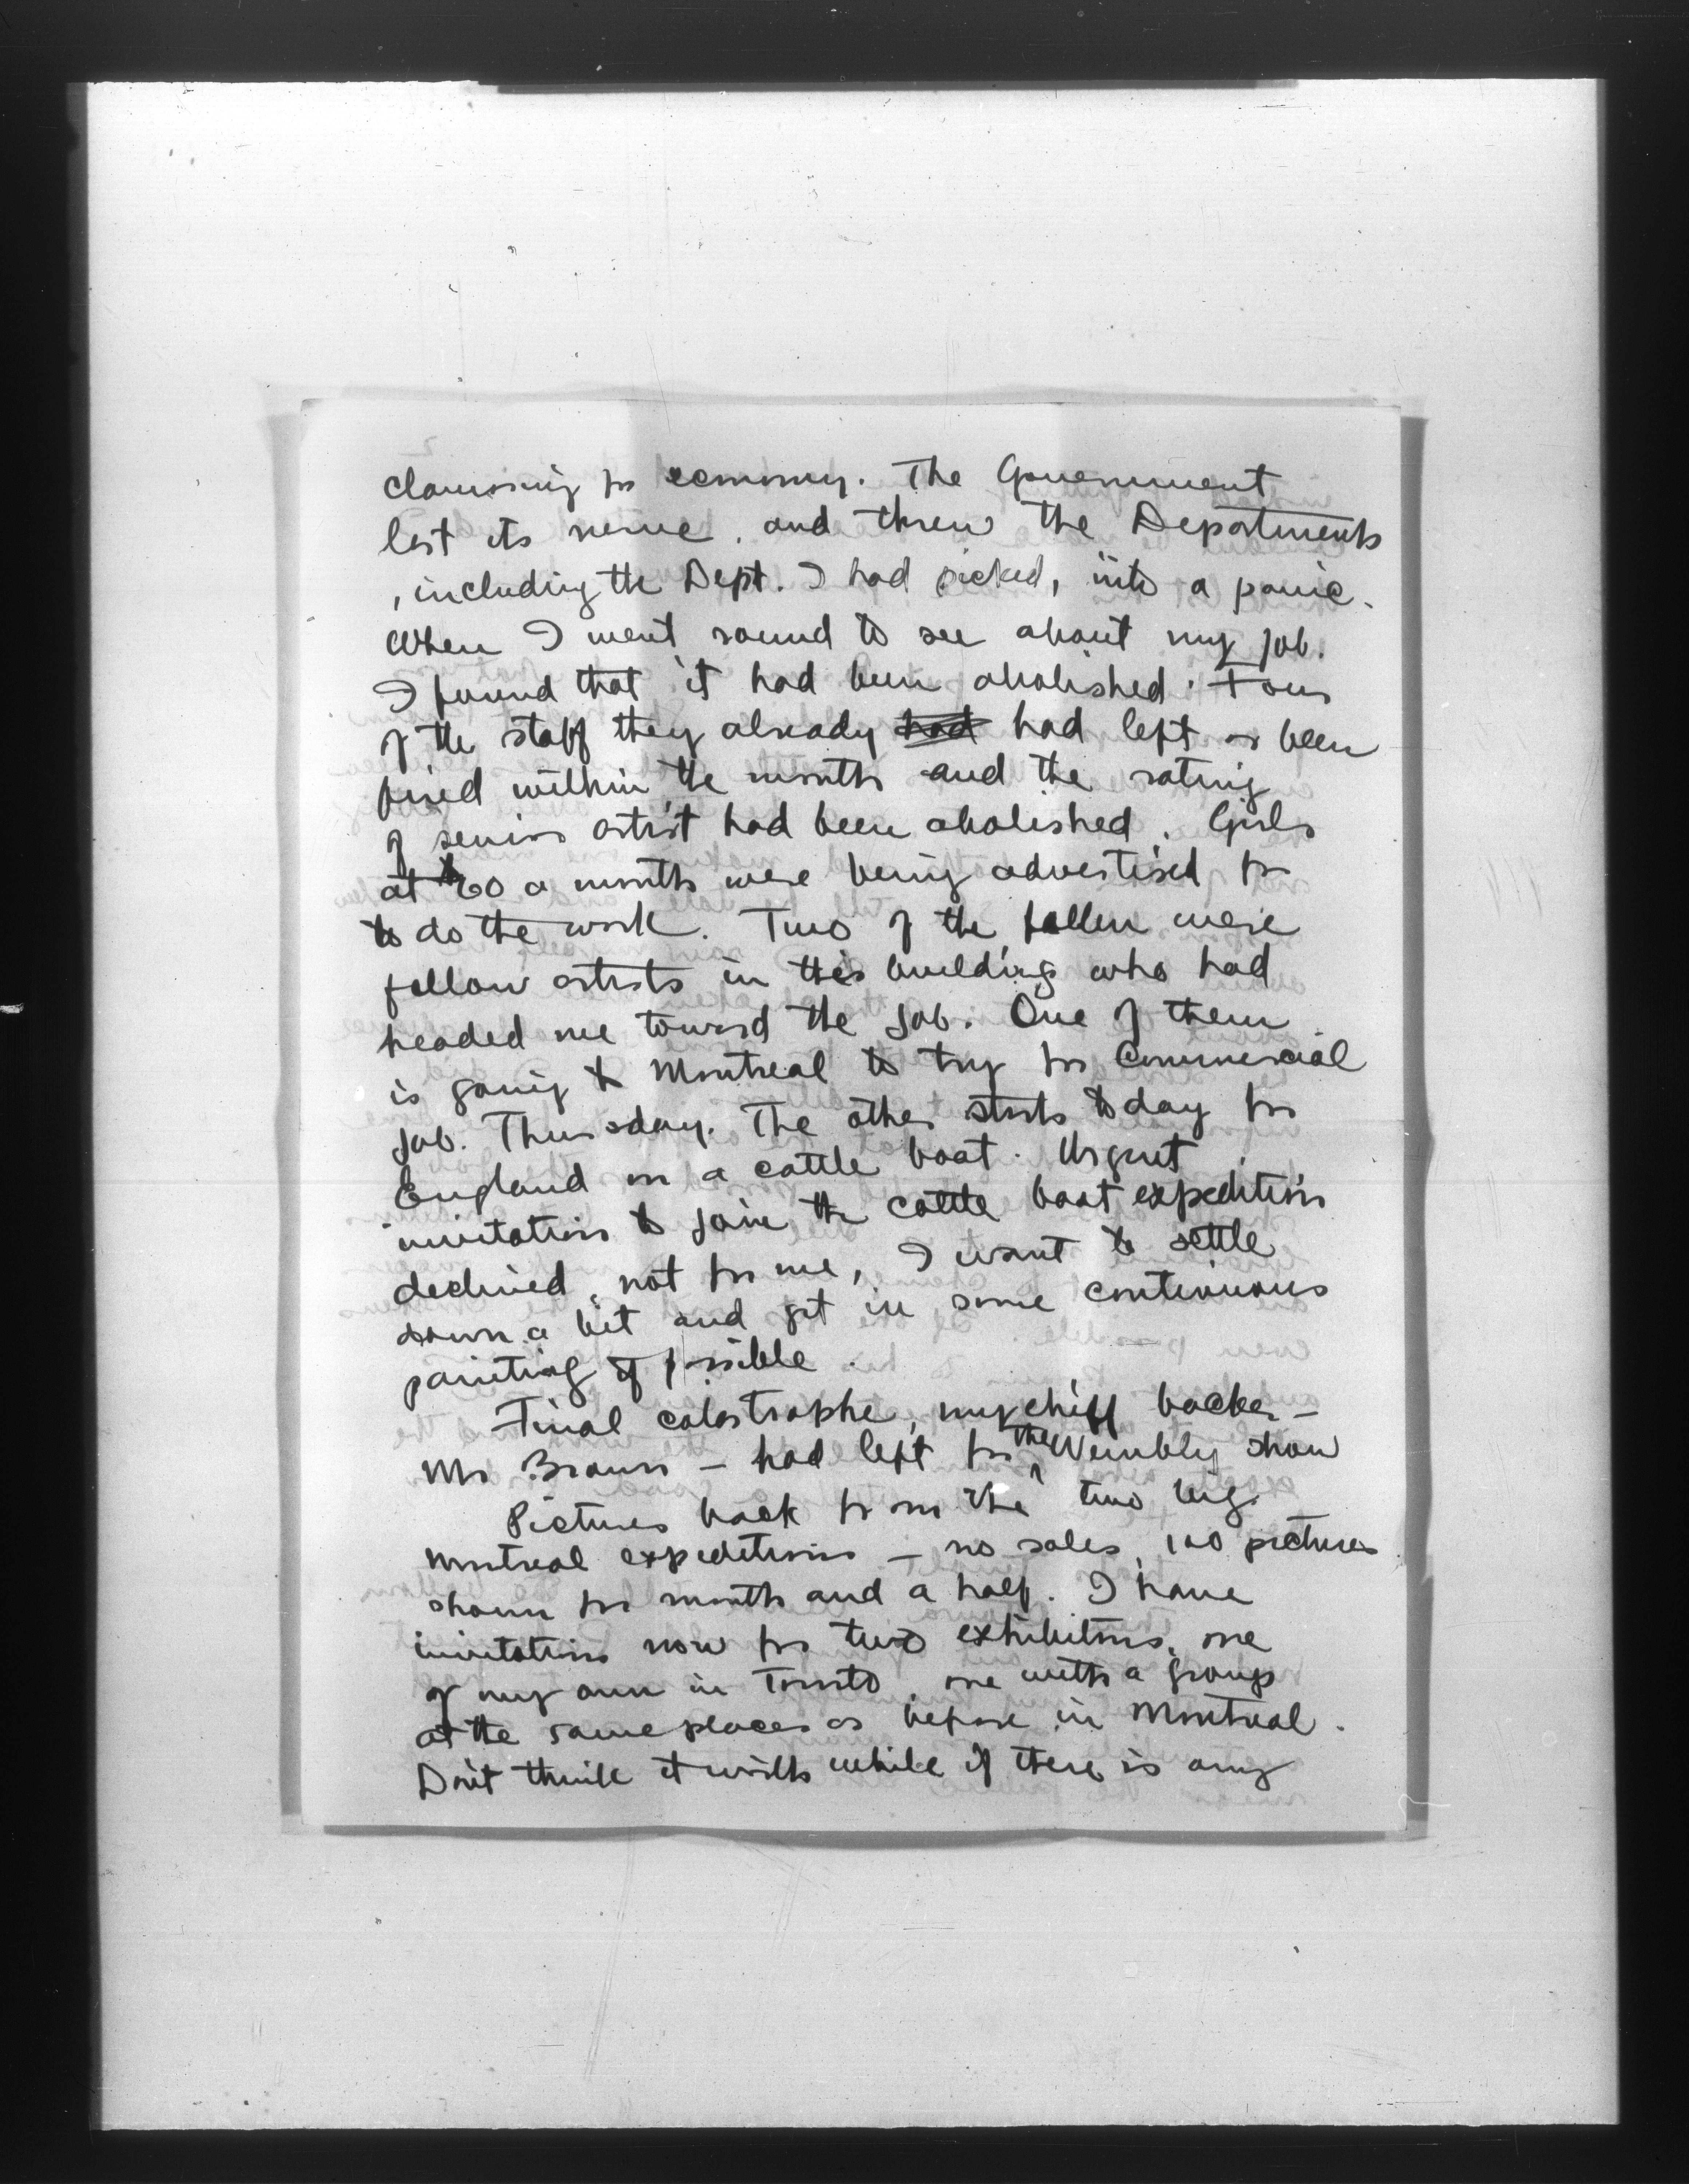 clamoring for economy. The Government
lost its nerve, and threw the Departments
, including the Dept. I had picked, into a panic.
When I went round to see about my job.
I found that it had been abolished. Four
of the staff they already had had left or been
fired within the month and the rating
of senior artist had been abolished. Girls
at $60 a month were being advertised for
to do the work. Two of the fallen were
fellow artists in this building who had
headed me toward the job. One of them
is going to Montreal to try for Commercial
job. Thursday. The other starts today for
England on a cattle boat. Urgent
invitation to join the cattle boat expedition
declined, not for me, I want to settle
down a bit and get in some continuous
painting if possible.
Final catastrophe, my chief backer -
Mr Brown - had left for the Wembly show
Pictures back from the two big
Montreal expeditions - no sales, 100 pictures
shown for month and a half. I have
invitations now for two exhibitions, one
of my own in Toronto, one with a group
at the same places as before in Montreal.
Don't think it worth while if there is any